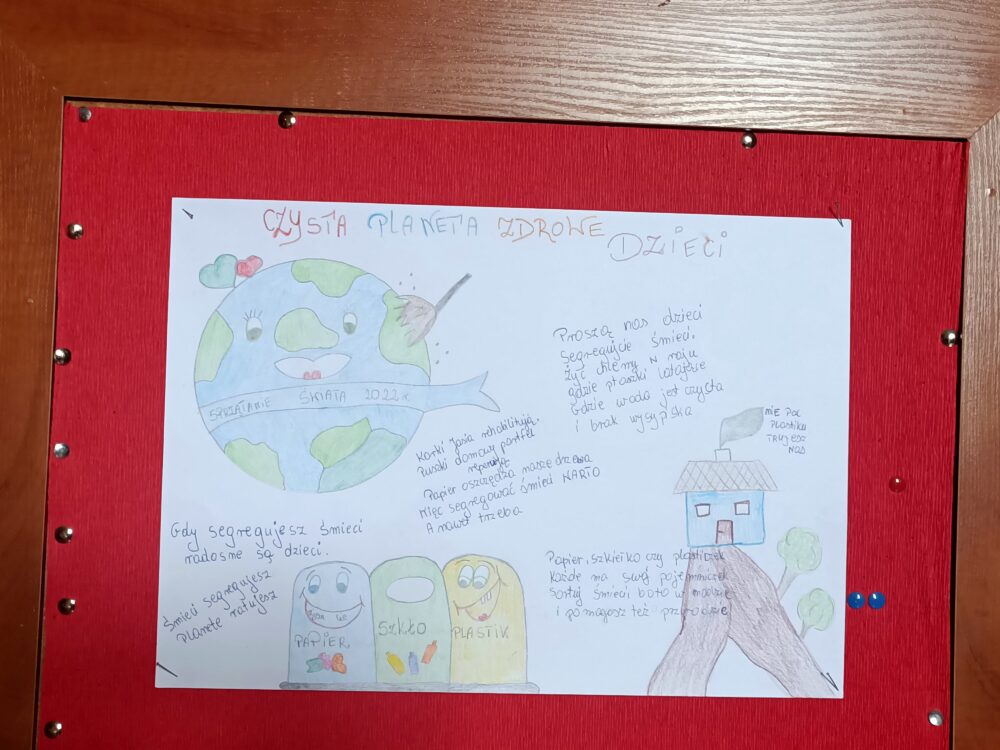 CZYSTA PLANETA ZDROWE DZIECI
SPRZĄTANIE ŚWIATA 2022r.
Proszą nas dzieci
Segregujcie śmieci.
Żyć chcemy w raju
gdzie ptaszki latają
Gdzie woda jest czysta
i brak wysypiska
NIE PAL
PLASTIKU
TRUJESZ
NAS
Korki Jasia rehabilitują.
Puszki domowy portfel
reperują
Papier oszczędza nasze drzewa
Więc segregować śmieci WARTO
A nawet trzeba
Gdy segregujesz śmieci
radosne są dzieci.
Śmieci segregujesz
Planetę ratujesz
PAPIER
SZKŁO
PLASTIK
Papier, szkiełko czy plasticzek
Każde ma swój pojemniczek
Sortuj śmieci bo to w modzie
i pomagasz też przyrodzie